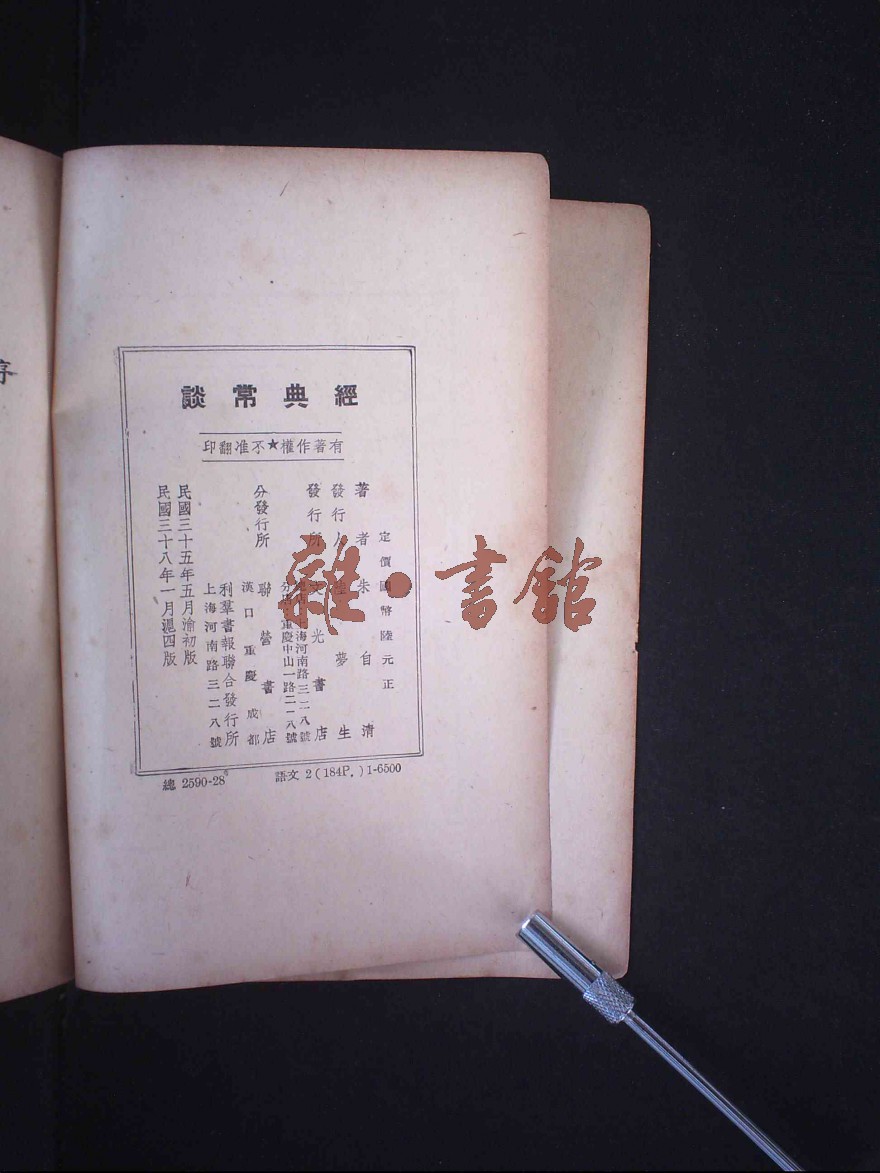 序
經典常談
有著作權★不准翻印
定價國幣陸元正
著者 朱自清
發行人 陸夢生
發行所 文光書店
總店上海河南路三二八號
分店重慶中山一路二一八號
分發行所 聯營書店
漢口 重慶 成都
利羣書報聯合發行所
上海河南路三二八號
民國三十五年五月渝初版
民國三十八年一月滬四版
總 2590-28
語文 2 (184P.) 1-6500
雜·書館